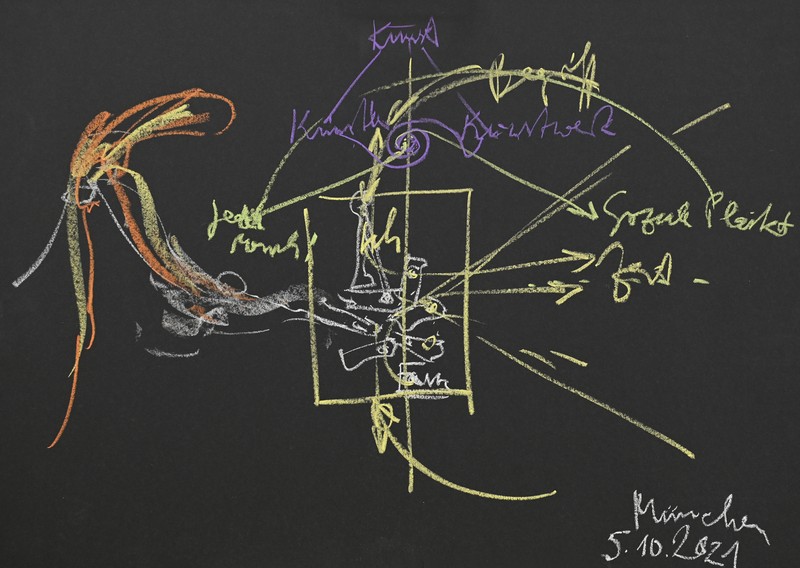 Kunst
Begriff
Künstler Kunstwerk
Jeder
Mensch
Ich
Soziale Plastik
Zeit
München
5.10.2021